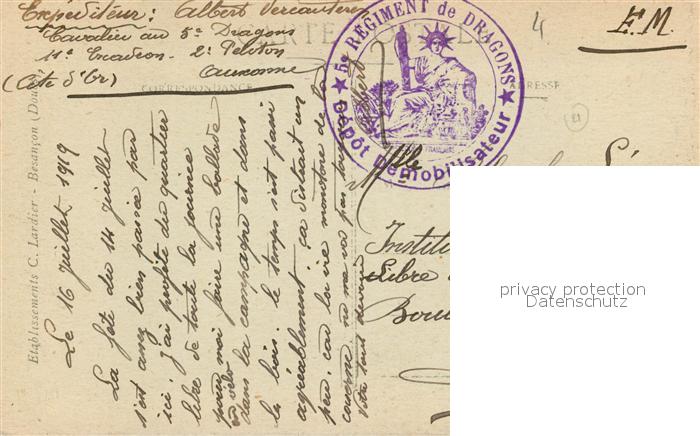 Expéditeur: Albert Vercauteren
Cavalier au 5e Dragons
11e Escadron - 2e Peloton
Auxonne
(Côte d'Or)
E.M.
4
CARTE POSTALE
CORRESPONDANCE
ADRESSE
5e REGIMENT de DRAGONS
Dépôt Démobilisateur
Etablissements C. Lardier - Besançon (Doubs)
Le 16 juillet 1919
La fête du 14 juillet
s'est assez bien passée par
ici. J'ai profité du quartier
libre de toute la journée
pour moi faire une ballade
en vélo
dans la campagne et dans
les bois. le temps s'est passé
agréablement, ça distrait un
peu, car la vie monotone de la
caserne ne me va pas
Votre tout dévoué
Albert
Mlle
Instit
Libre
Bou
privacy protection
Datenschutz